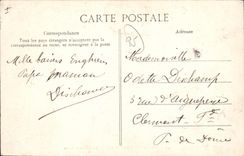 CARTE POSTALE
Correspondance
Tous les pays étrangers n'acceptent pas la
correspondance au verso, se renseigner à la poste
Adresse
Mille baisers Enghien
Papa Maman
Deschamp
Mademoiselle
Odette Deschamp
5 rue d'Aigueperse
Clermont Fd
P. de Dôme